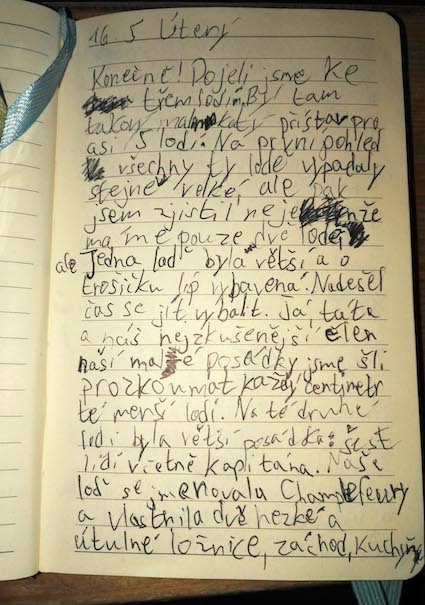 16 5 Úterý
Konečně! Dojeli jsme ke
třem lodím. Byl tam
takový malinkatý přístav pro
asi 5 lodí. Na první pohled
všechny ty lodě vypadaly
stejně velké, ale pak
jsem zjistil nejenže
máme pouze dvě lodě,
ale Jedna loď byla větší a o
trošičku líp vybavená. Nadešel
čas se jít vybalit. Já táta
a náš nejzkušenější člen
naší malé posádky jsme šli
prozkoumat každý centimetr
té menší lodi. Na té druhé
lodi byla větší posádka: šest
lidí včetně kapitána. Naše
loď se jmenovala
a vlastnila dvě hezké a
útulné ložnice, záchod, kuchyň